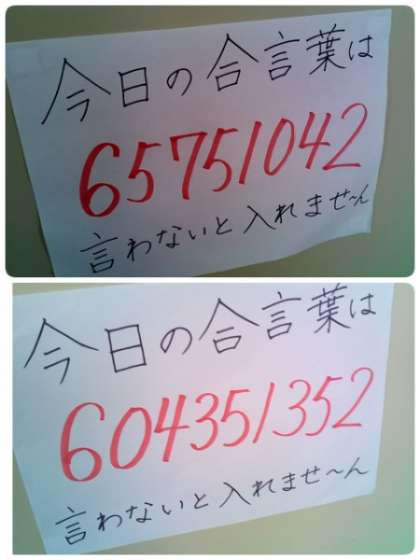 今日の合言葉は
65751042
言わないと入れませ~ん
今日の合言葉は
604351352
言わないと入れませ~ん